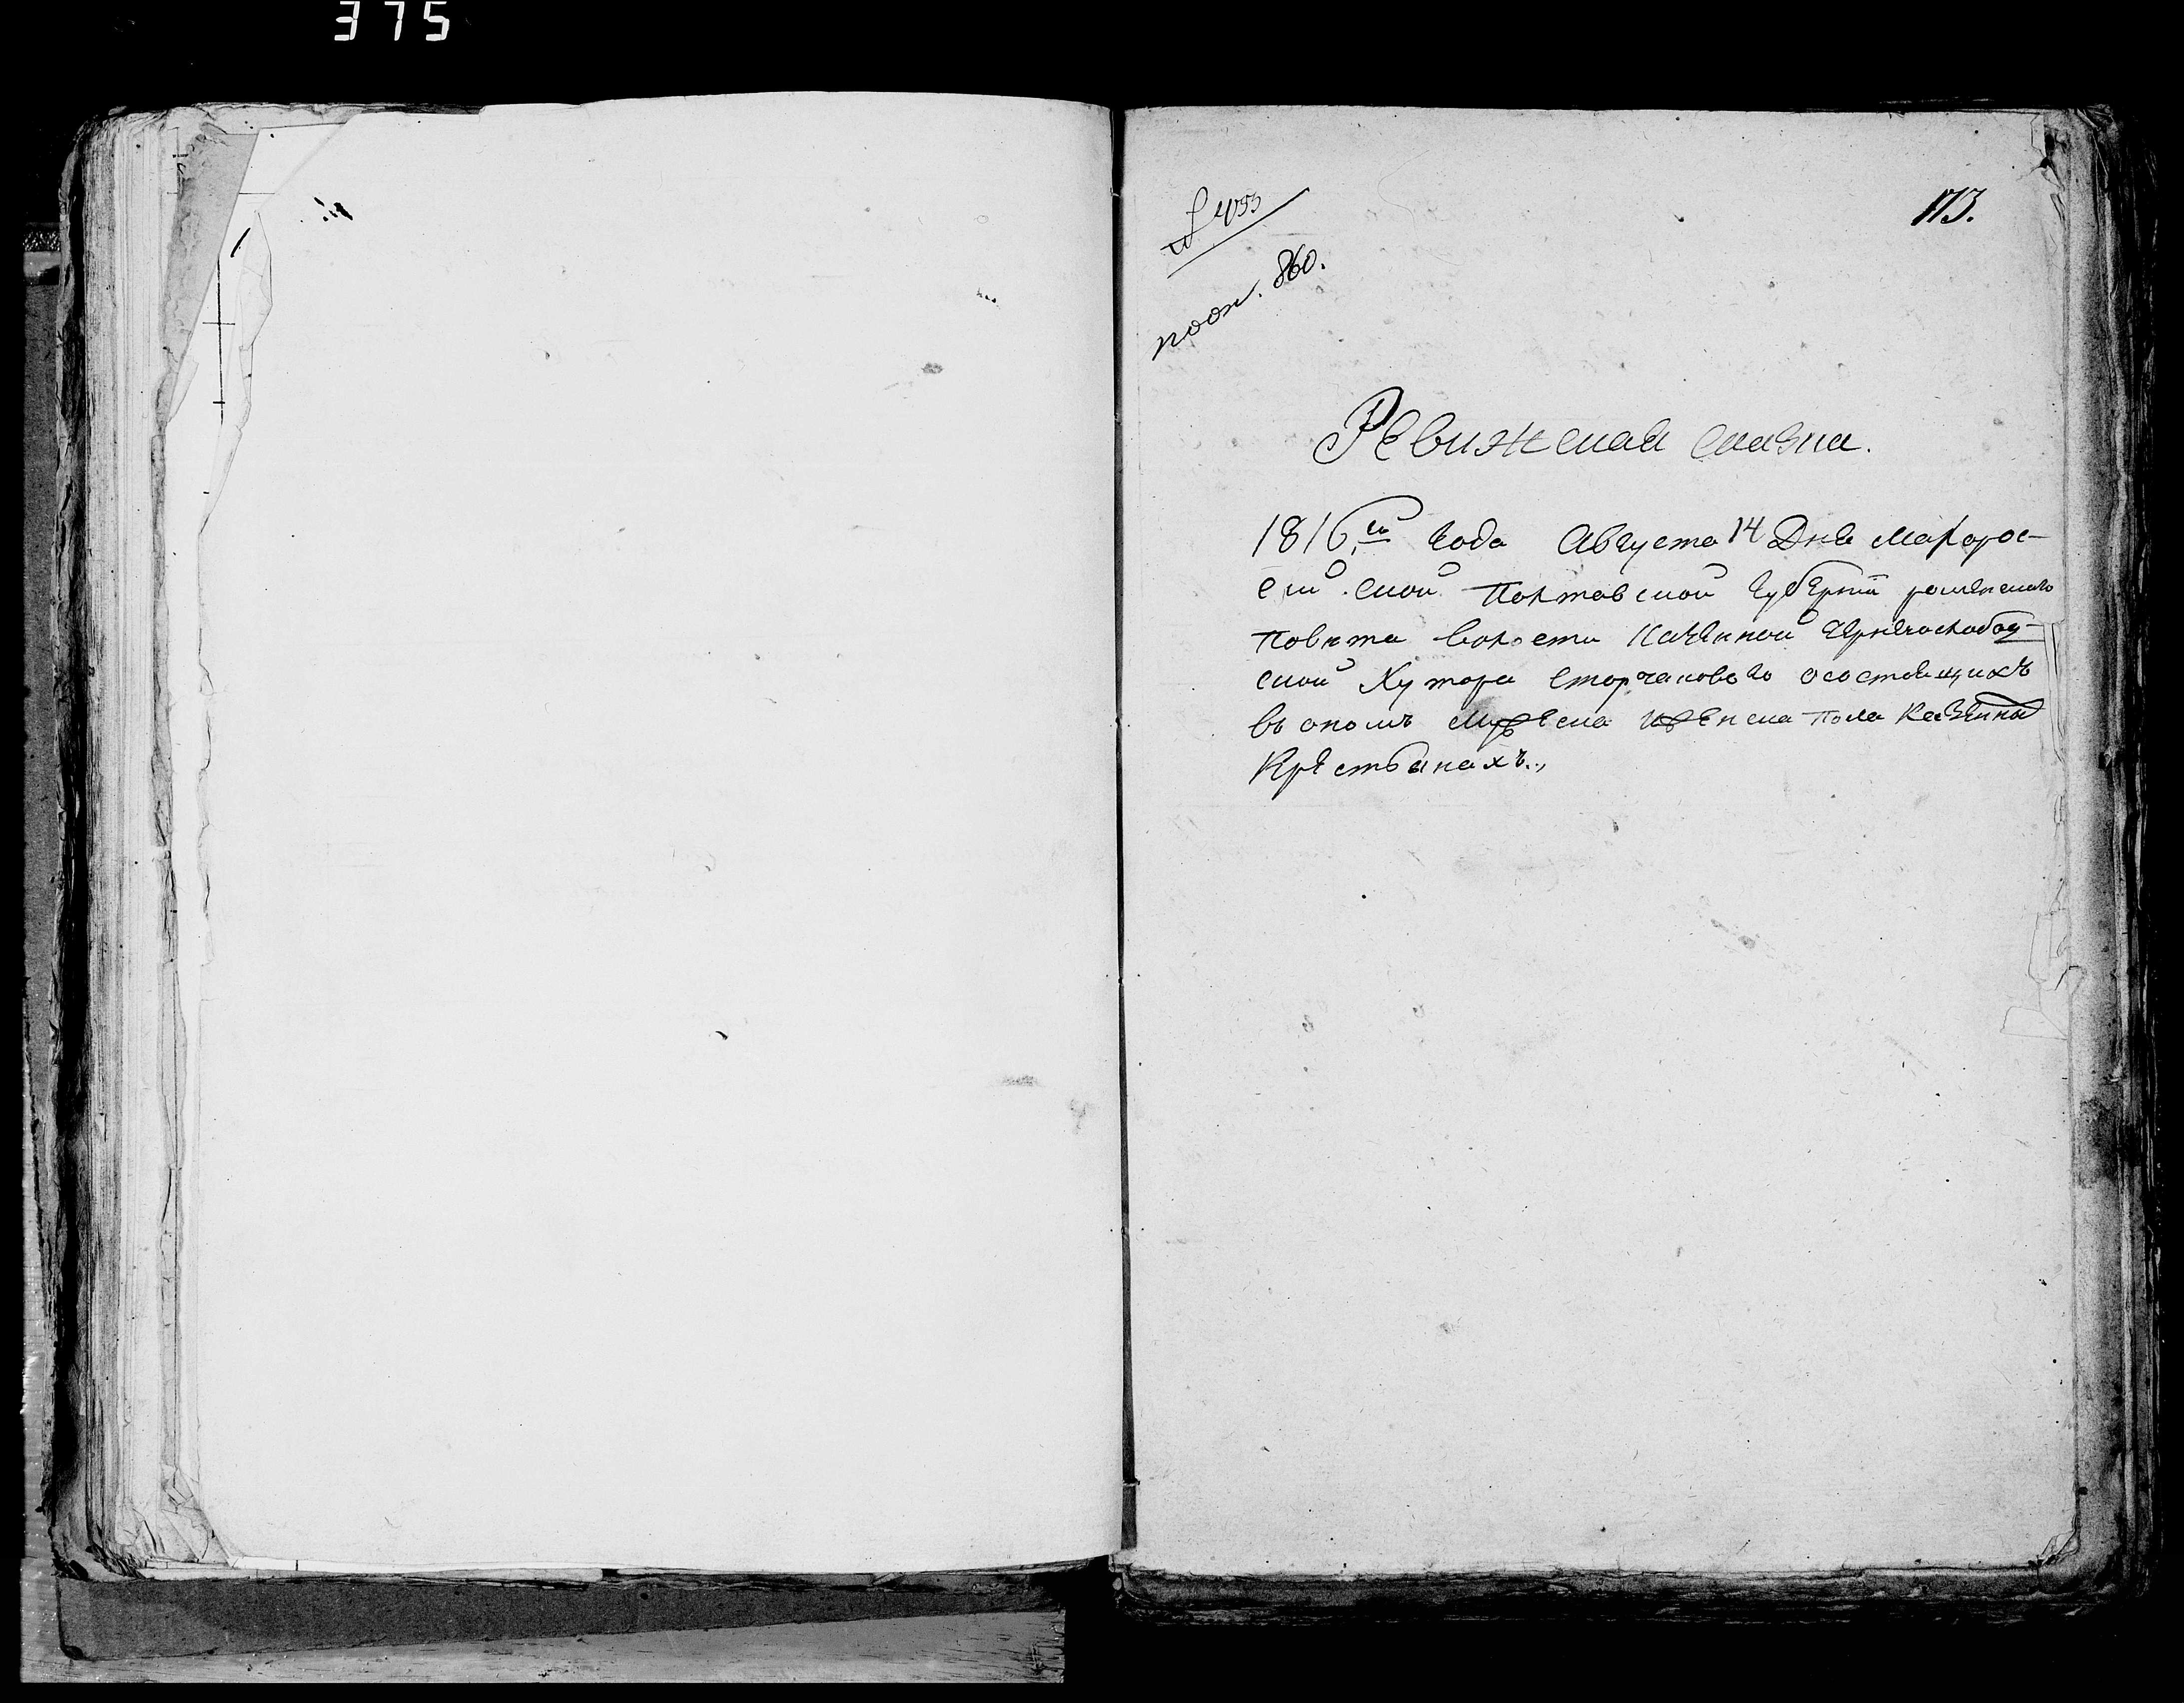 375
173.
№ 1053
860.
Ревижская сказка.
1816го Года Августа 14 Дня Малорос-
сийской Полтавской Губернии роменского
Повета волости Казенной Чернечослобод-
ской Хутора сторчанового осостоящихъ
въ ономъ мужеска иженска пола Казенных
Крестьянахъ.,